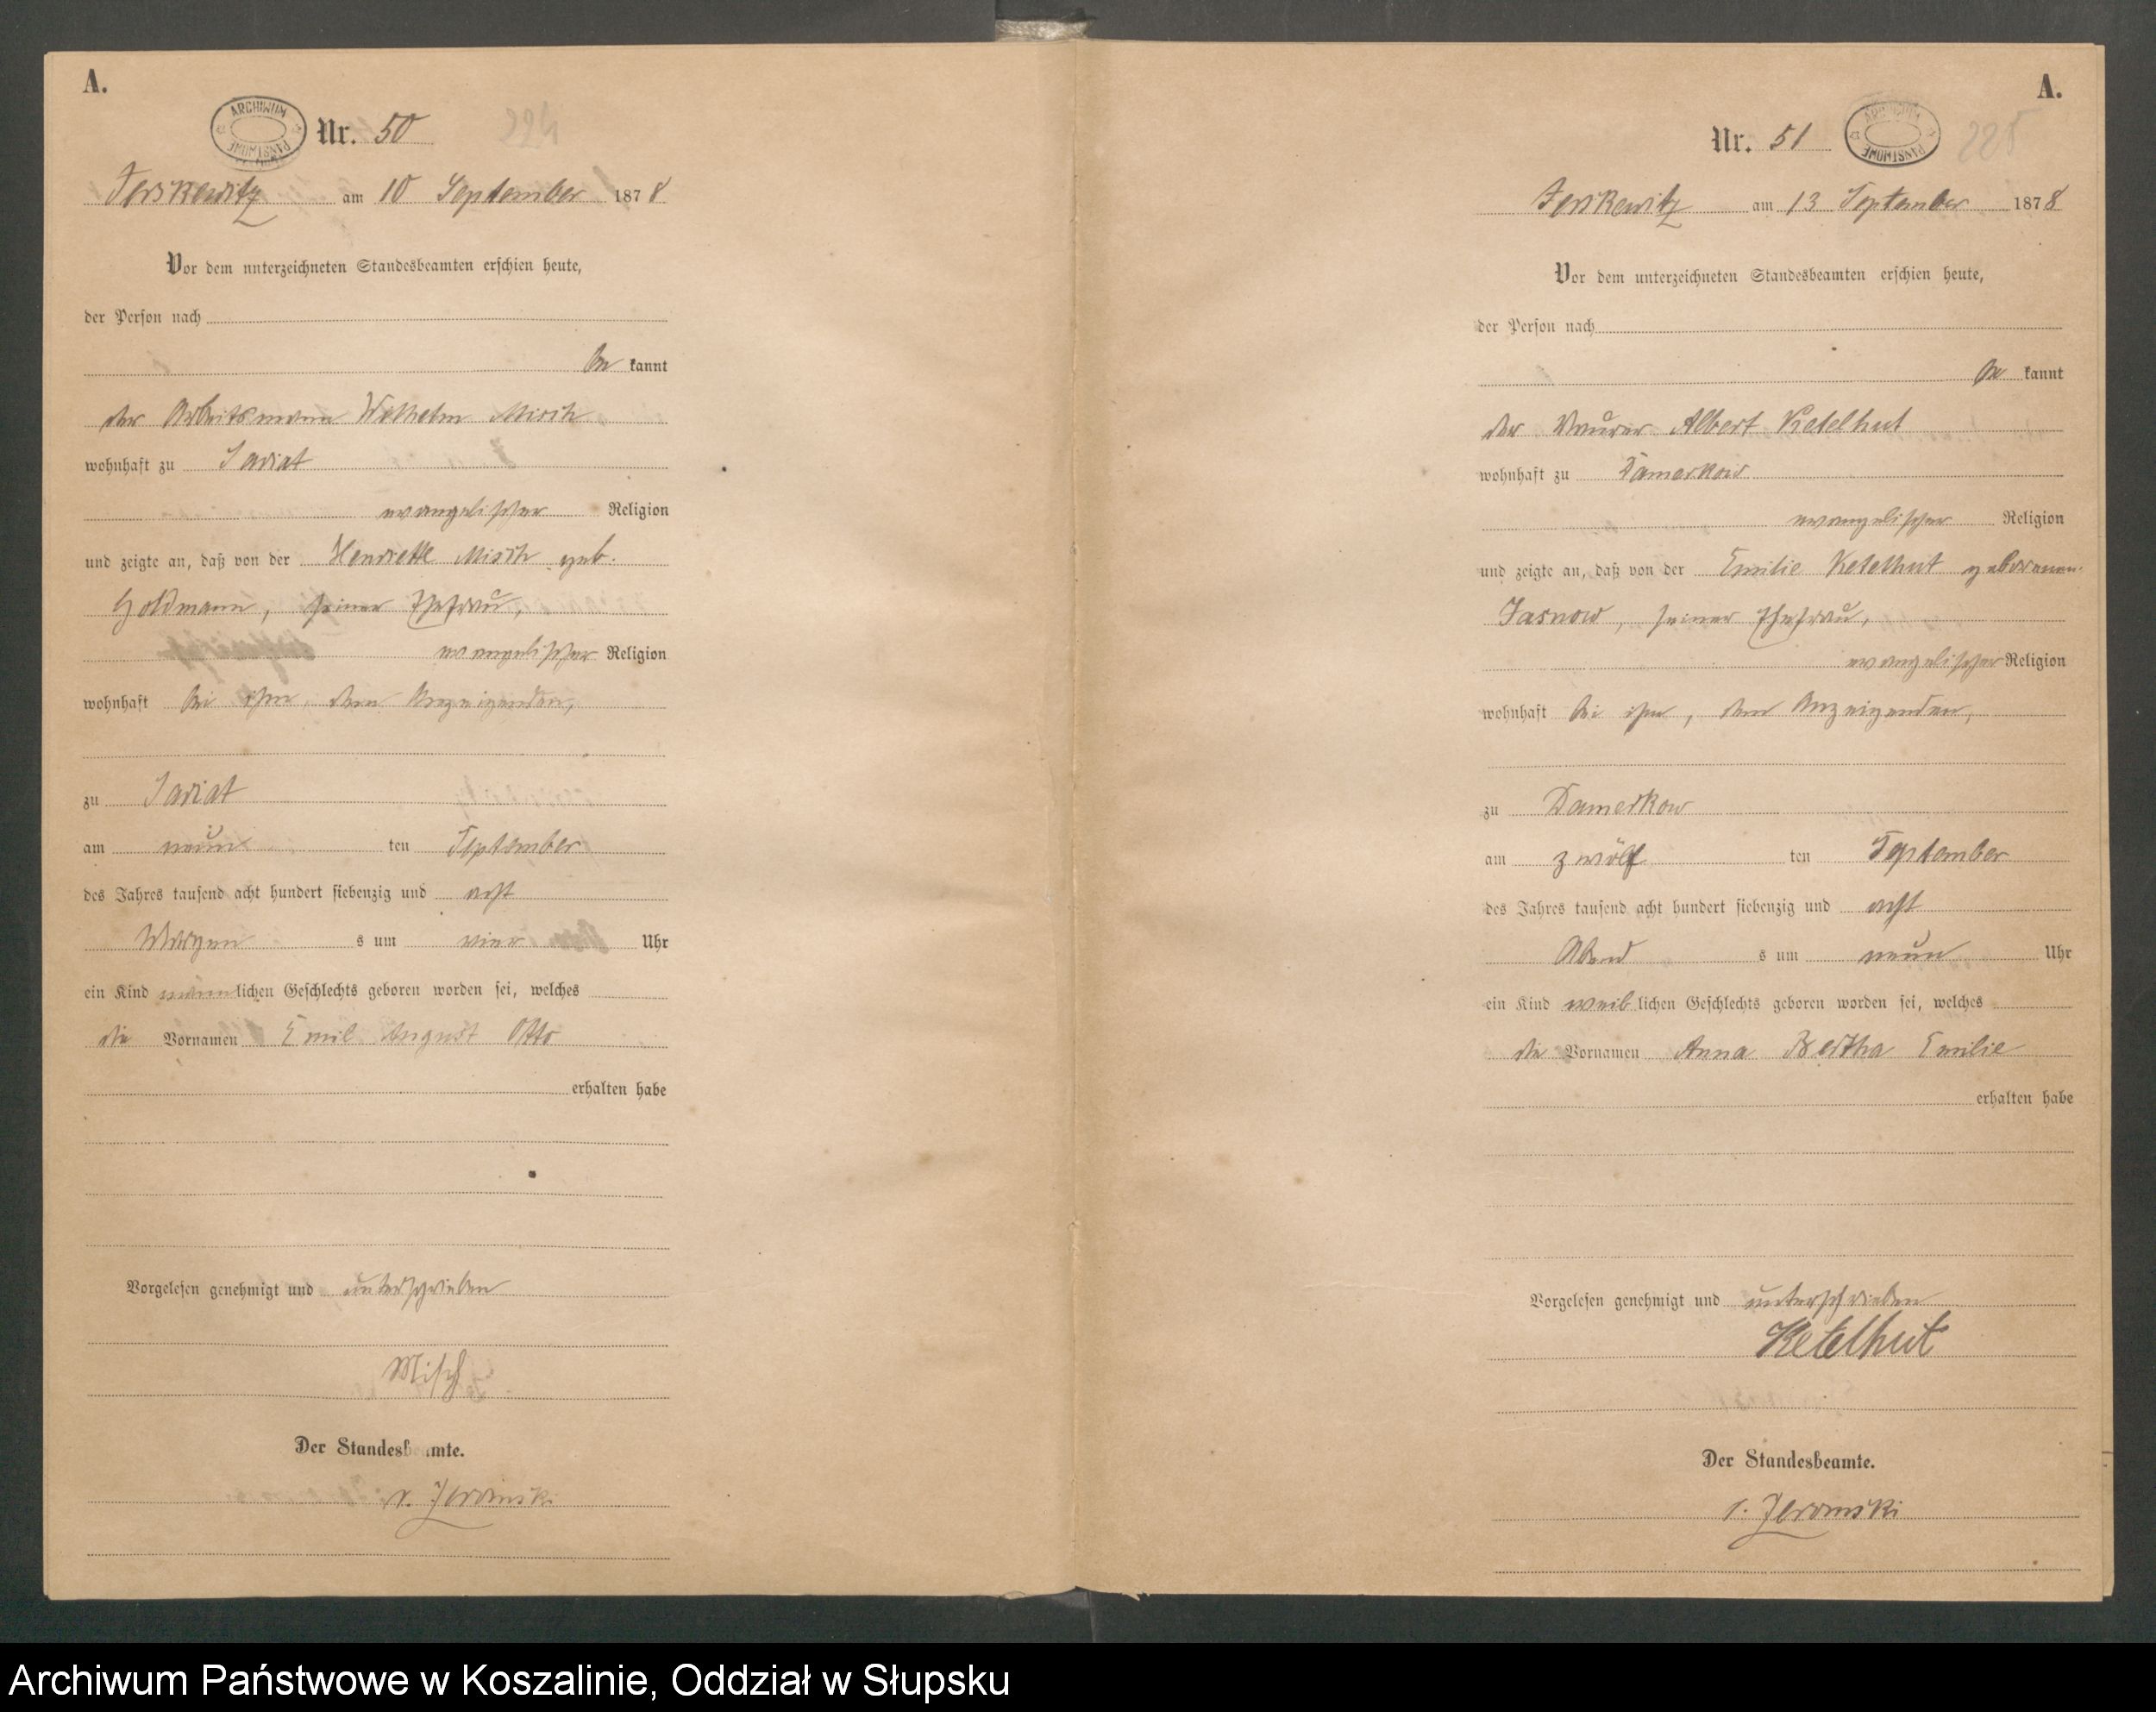 A.
ARCHIWUM PAŃSTWOWE
Nr. 50
224
Jerskewitz am 10 September 1878
Vor dem unterzeichneten Standesbeamten erschien heute,
der Person nach
be kannt
der Arbeitsmann Wilhelm Misch
wohnhaft zu
evangelischer Religion
und zeigte an, daß von der Henriette Misch geb.
Goldmann, seiner Ehefrau,
evangelischer Religion
wohnhaft bei ihm, dem Anzeigenden,
zu
am neun ten September
des Jahres tausend acht hundert siebenzig und acht
Morgen s um vier Uhr
ein Kind männlichen Geschlechts geboren worden sei, welches
die Vornamen Emil August Otto
erhalten habe
Vorgelesen genehmigt und unterschrieben
Misch
Der Standesbeamte.
v. Jeromski
A.
Nr. 51
ARCHIWUM PAŃSTWOWE
225
Jerskewitz am 13 September 1878
Vor dem unterzeichneten Standesbeamten erschien heute,
der Person nach
be kannt
der Maurer Albert Ketelhut
wohnhaft zu Damerkow
evangelischer Religion
und zeigte an, daß von der Emilie Ketelhut geborenen
Jasnow, seiner Ehefrau,
evangelischer Religion
wohnhaft bei ihm, dem Anzeigenden,
zu Damerkow
am zwölf ten September
des Jahres tausend acht hundert siebenzig und acht
Abend s um neun Uhr
ein Kind weiblichen Geschlechts geboren worden sei, welches
die Vornamen Anna Bertha Emilie
erhalten habe
Vorgelesen genehmigt und unterschrieben
Ketelhut
Der Standesbeamte.
v. Jeromski
Archiwum Państwowe w Koszalinie, Oddział w Słupsku